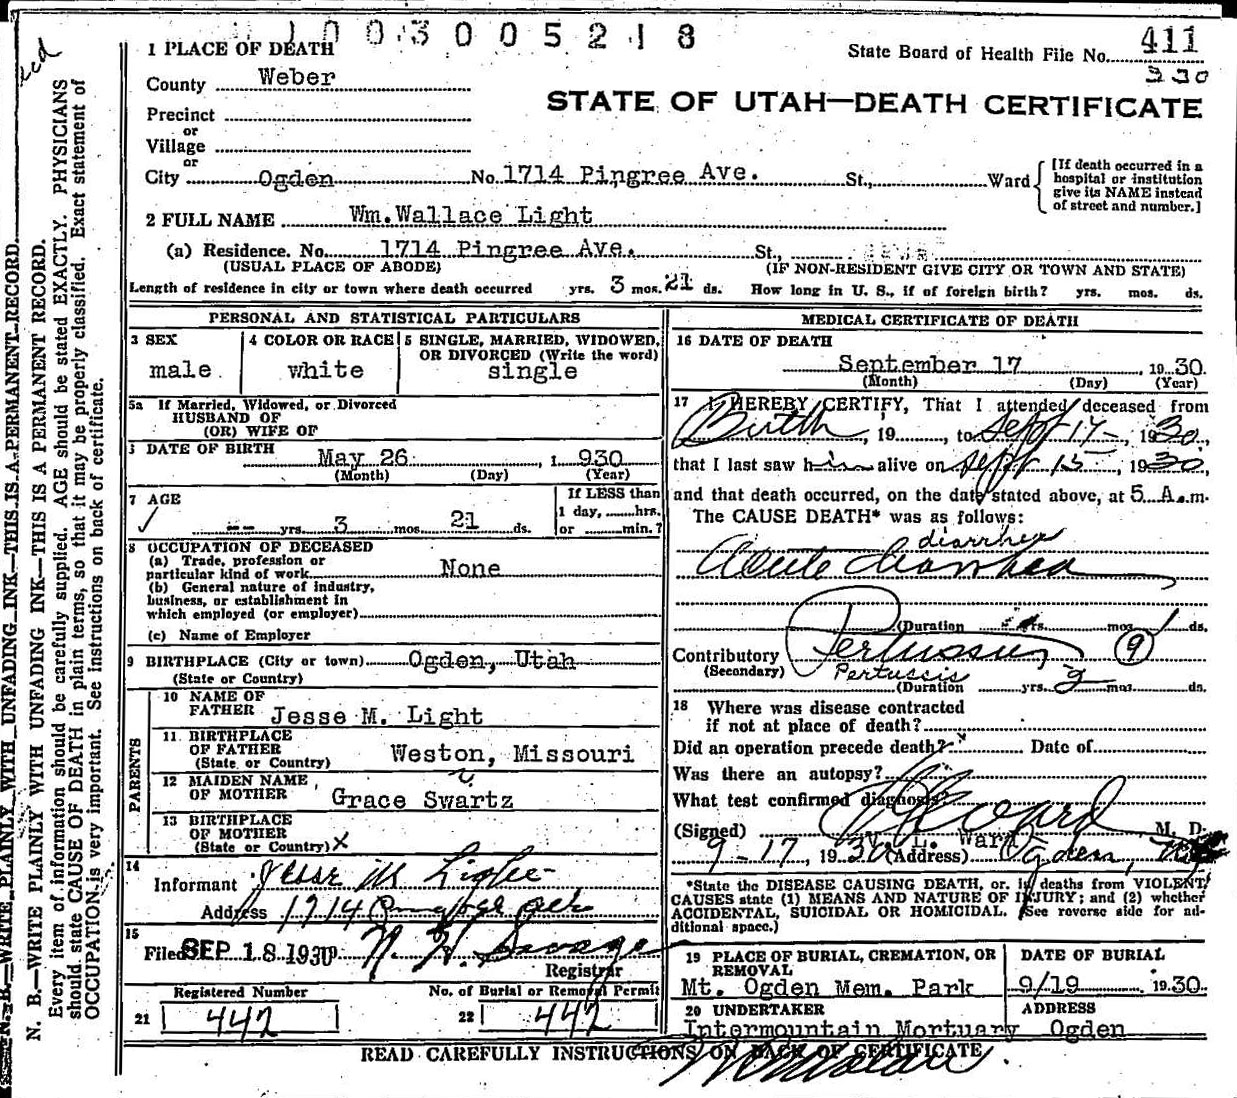 1003005218
State Board of Health File No. 411
330
1 PLACE OF DEATH
County Weber
STATE OF UTAH—DEATH CERTIFICATE
Precinct
or
Village
or
City Ogden No. 1714 Pingree Ave. St., Ward
[If death occurred in a hospital or institution give its NAME instead of street and number.]
2 FULL NAME Wm. Wallace Light
(a) Residence. No. 1714 Pingree Ave. St.,
(USUAL PLACE OF ABODE) (IF NON-RESIDENT GIVE CITY OR TOWN AND STATE)
Length of residence in city or town where death occurred yrs. 3 mos. 21 ds. How long in U. S., if of foreign birth? yrs. mos. ds.
PERSONAL AND STATISTICAL PARTICULARS
3 SEX
male
4 COLOR OR RACE
white
5 SINGLE, MARRIED, WIDOWED, OR DIVORCED (Write the word)
single
5a If Married, Widowed, or Divorced
HUSBAND OF
(OR) WIFE OF
DATE OF BIRTH
May 26, 1 930
(Month) (Day) (Year)
7 AGE
-- yrs. 3 mos. 21 ds.
If LESS than
1 day, hrs.
or min.?
8 OCCUPATION OF DECEASED
(a) Trade, profession or
particular kind of work None
(b) General nature of industry,
business, or establishment in
which employed (or employer)
(c) Name of Employer
9 BIRTHPLACE (City or town) Ogden, Utah
(State or Country)
PARENTS
10 NAME OF
FATHER Jesse M. Light
11 BIRTHPLACE
OF FATHER Weston, Missouri
(State or Country)
12 MAIDEN NAME
OF MOTHER Grace Swartz
13 BIRTHPLACE
OF MOTHER
(State or Country) x
14
Informant Jesse M Light
Address 1714 Pingree Ave
15
Filed SEP 18 1930 Registrar
Registered Number
21 442
No. of Burial or Removal Permit
22 442
MEDICAL CERTIFICATE OF DEATH
16 DATE OF DEATH
September 17, 1930.
(Month) (Day) (Year)
17 I HEREBY CERTIFY, That I attended deceased from
Birth, 19, to Sept 17, 1930,
that I last saw him alive on Sept 15, 1930,
and that death occurred, on the date stated above, at 5 A.m.
The CAUSE DEATH* was as follows:
diarrhea
Acute diarrhea
(Duration yrs. mos. ds.
Contributory Pertussis 9
(Secondary) Pertussis
(Duration yrs. 2 mos. ds.
18 Where was disease contracted
if not at place of death?
Did an operation precede death? Date of
Was there an autopsy?
What test confirmed diagnosis?
(Signed) M. D.
V. L. Ward
9-17, 1930 (Address) Ogden,
*State the DISEASE CAUSING DEATH, or, in deaths from VIOLENT
CAUSES state (1) MEANS AND NATURE OF INJURY; and (2) whether
ACCIDENTAL, SUICIDAL OR HOMICIDAL. (See reverse side for ad-
ditional space.)
19 PLACE OF BURIAL, CREMATION, OR REMOVAL
Mt. Ogden Mem. Park
DATE OF BURIAL
9/19 1930.
20 UNDERTAKER
Intermountain Mortuary
ADDRESS
Ogden
READ CAREFULLY INSTRUCTIONS ON BACK OF CERTIFICATE
N. B.—WRITE PLAINLY WITH UNFADING INK—THIS IS A PERMANENT RECORD.
N. B.—WRITE PLAINLY WITH UNFADING INK—THIS IS A PERMANENT RECORD.
Every item of information should be carefully supplied. AGE should be stated EXACTLY. PHYSICIANS
should state CAUSE OF DEATH in plain terms, so that it may be properly classified. Exact statement of
OCCUPATION is very important. See instructions on back of certificate.